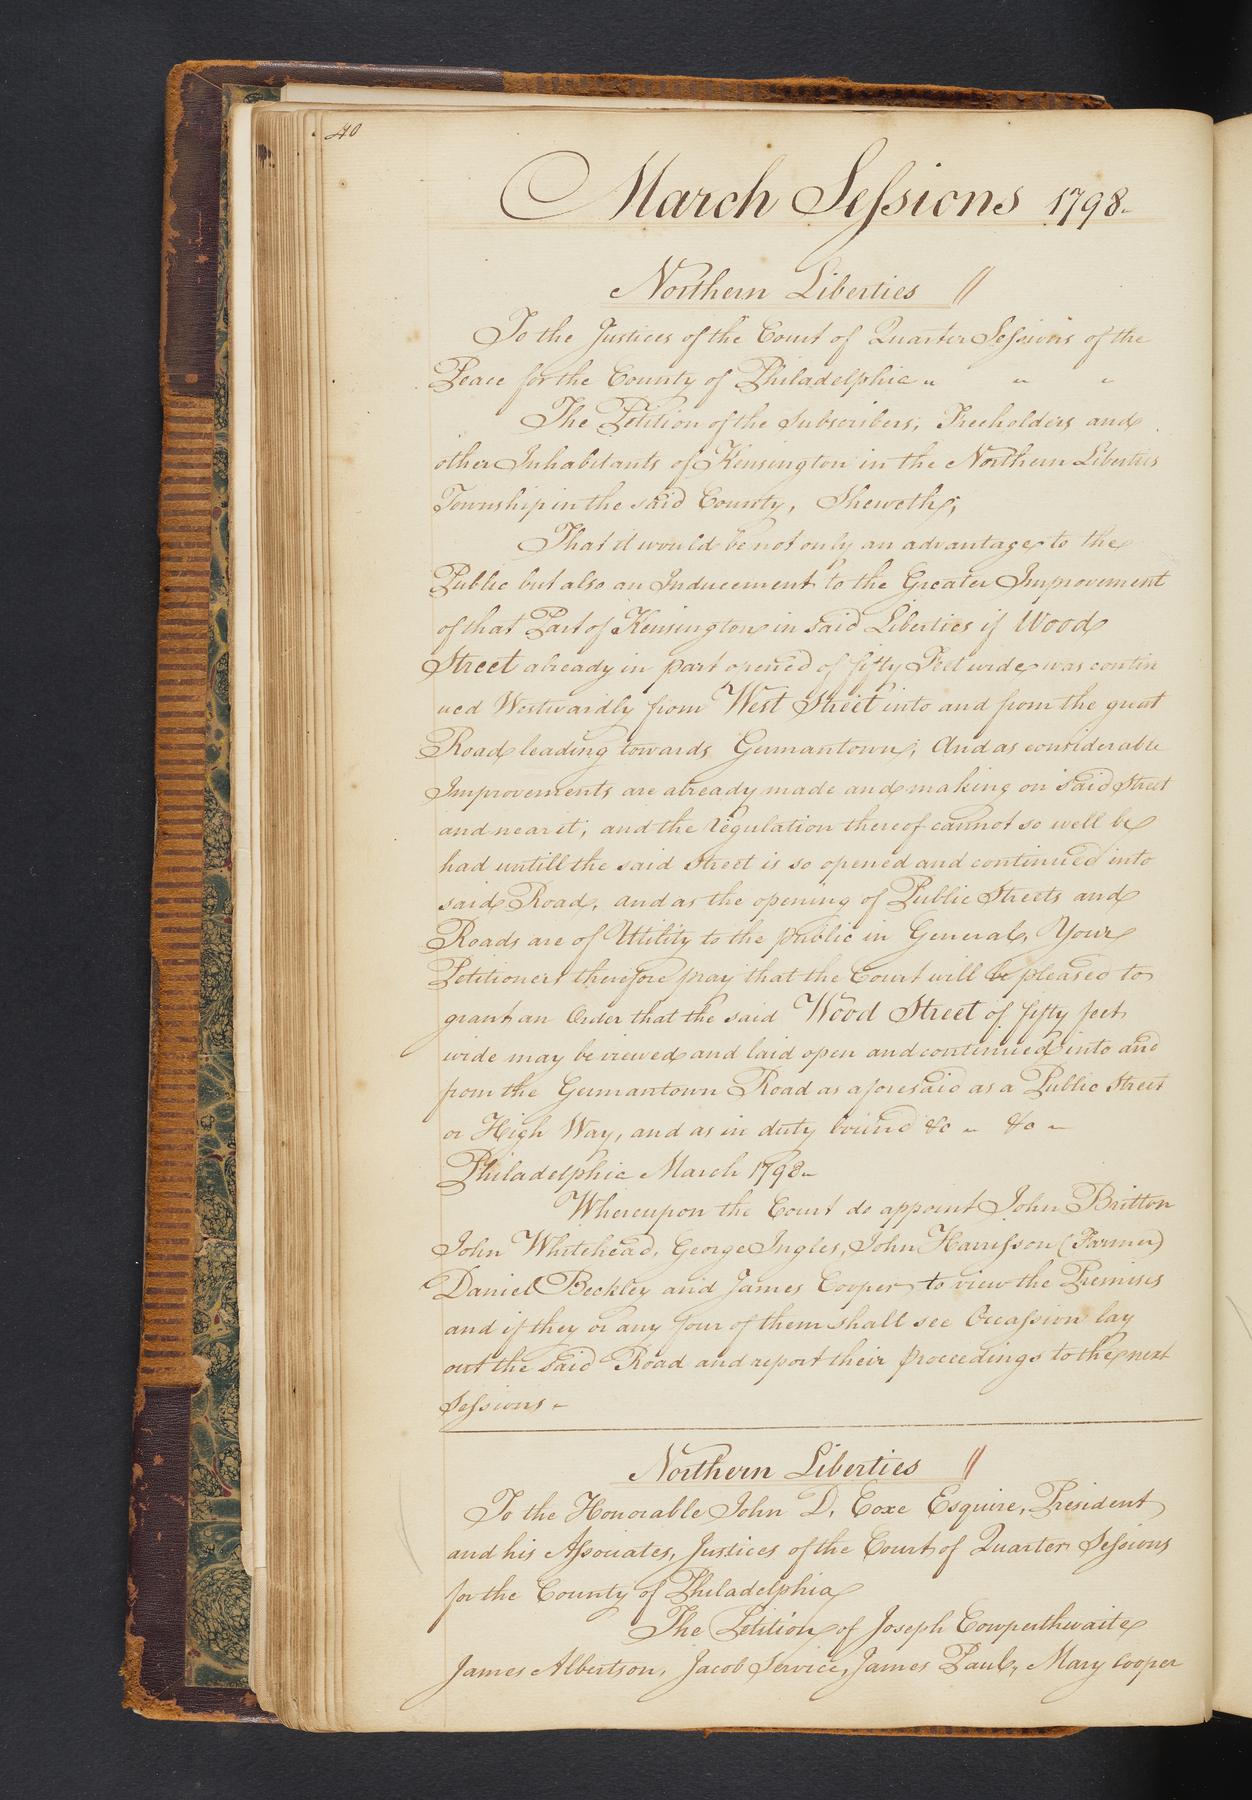 40
March Sessions 1798.
Northern Liberties //
To the Justices of the Court of Quarter Sessions of the
Peace for the County of Philadelphia " " "
The Petition of the Subscribers, Freeholders and
other Inhabitants of Kensington in the Northern Liberties
Township in the said County, Sheweth;
That it would be not only an advantage to the
Public but also an Inducement to the Greater Improvement
of that Part of Kensington in said Liberties if Wood
Street already in part opened of fifty Feet wide was contin
ued Westwardly from West Street into and from the great
Road leading towards Germantown; And as considerable
Improvements are already made and making on said Street
and near it; and the regulation thereof cannot so well be
had untill the said Street is so opened and continued into
said Road, and as the opening of Public Streets and
Roads are of Utility to the public in General, Your
Petitioners therefore pray that the Court will be pleased to
grant an Order that the said Wood Street of fifty feet
wide may be viewed and laid open and continued into and
from the Germantown Road as aforesaid as a Public Street
or High Way, and as in duty bound &c " &c "
Philadelphia March 1798.
Whereupon the Court do appoint John Britton
John Whitehead, George Ingles, John Harrisson (Farmer)
Daniel Beckley and James Cooper to view the Premises
and if they or any four of them shall see Occassion lay
out the said Road and report their proceedings to the next
Sessions -
Northern Liberties //
To the Honorable John D. Coxe Esquire, President
and his Associates, Justices of the Court of Quarter Sessions
for the County of Philadelphia
The Petition of Joseph Cowperthwaite
James Albertson, Jacob Service, James Paul, Mary Cooper